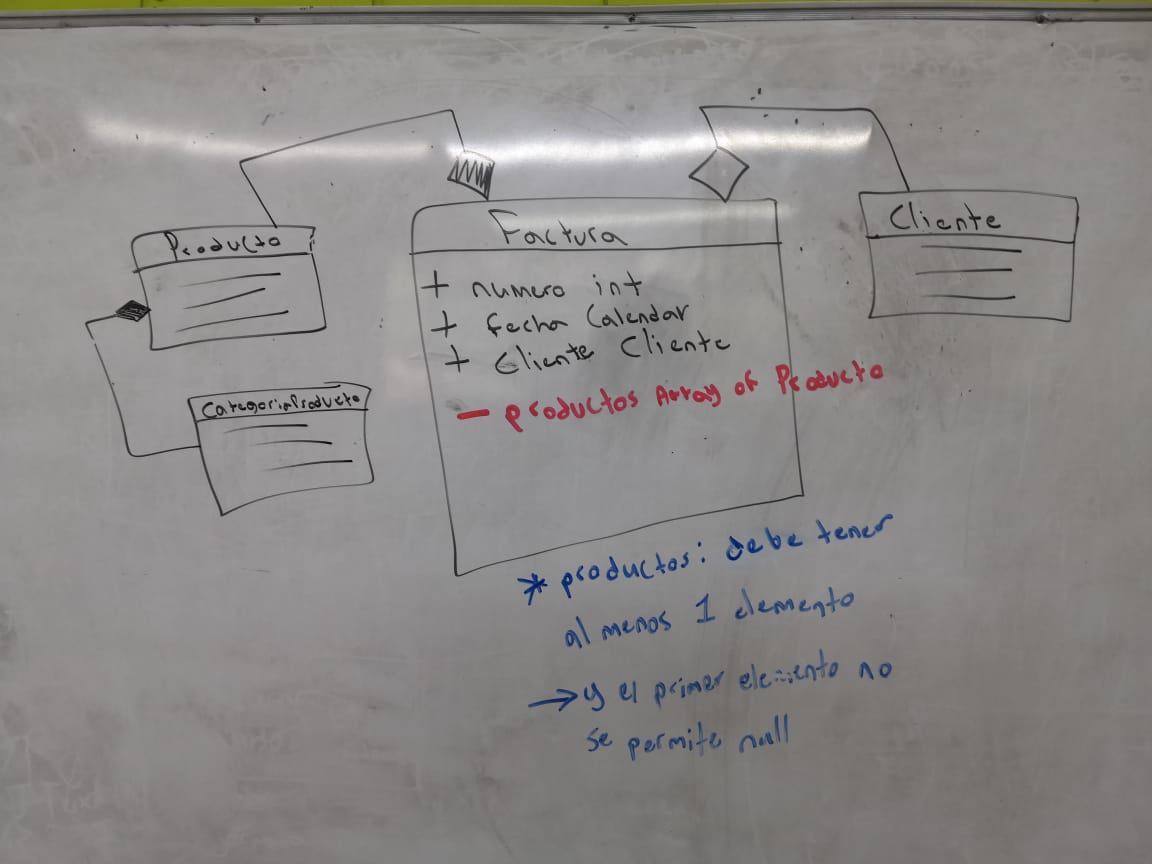 Producto
CategoriaProducto
Factura
+ numero int
+ fecha Calendar
+ Cliente Cliente
- productos Array of Producto
Cliente
* productos: debe tener
al menos 1 elemento
→ y el primer elemento no
se permite null